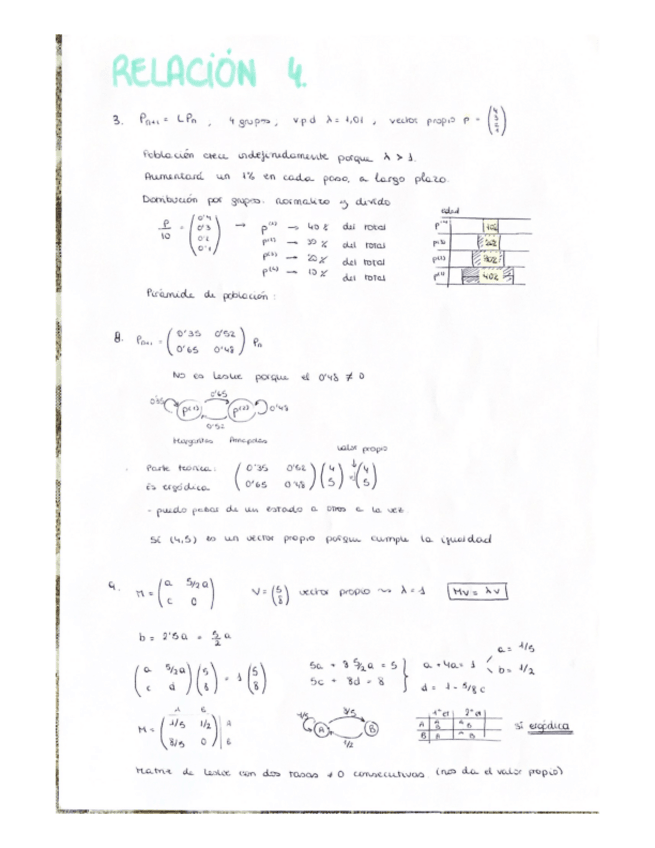 RELACIÓN 4.
3. Pn+1 = LPn , 4 grupos, v.p.d λ = 1,01 , vector propio p = (4 3 2 1)
Población crece indefinidamente porque λ > 1.
Aumentará un 1% en cada paso, a largo plazo.
Distribución por grupos: normalizo y divido
P/10 = (0'4 0'3 0'2 0'1) → P(1) → 40% del total
P(2) → 30% del total
P(3) → 20% del total
P(4) → 10% del total
edad
P(4) 10%
P(3) 20%
P(2) 30%
P(1) 40%
Pirámide de población:
8. Pn+1 = (0'35 0'52 0'65 0'48) Pn
No es Leslie porque el 0'48 ≠ 0
0'35 P(1) 0'65 P(2) 0'48
0'52
Margaritas
valor propio
Parte teórica: (0'35 0'52 0'65 0'48) (4 5) = (4 5)
Es ergódica
- puedo pasar de un estado a otros a la vez.
Sí (4,5) es un vector propio porque cumple la igualdad
9. M = (a 5/2a c 0) V = (5 8) vector propio ~> λ = 1 MV = λV
b = 2'5a = 5/2 a
(a 5/2a c d) (5 8) = 1 (5 8)
5a + 8 5/2 a = 5
5c + 8d = 8
a + 4a = 1
a = 1/5
b = 1/2
d = 1 - 5/8 c
M = (1/5 1/2 8/5 0) A B
1/5 A 8/5 B
1/2
1ª et 2ª et
A A B A B
B A A B
Sí ergódica
Matriz de Leslie con dos tasas ≠ 0 consecutivas. (nos da el valor propio)